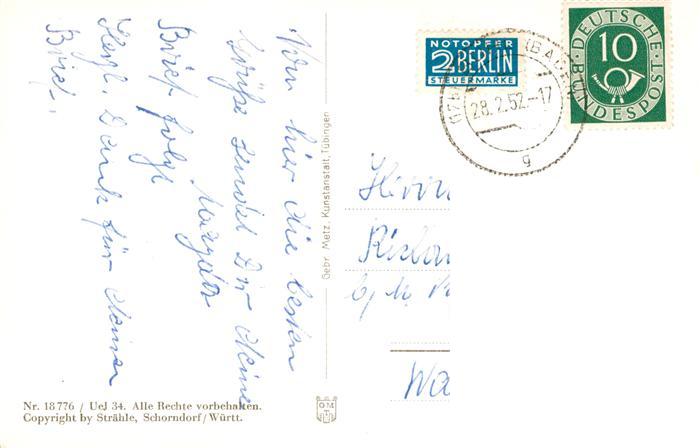 Von hier die besten
Grüße sendet Dir Deine
Margot
Brief folgt
Herzl. Dank für Deinen
Brief.
Gebr. Metz, Kunstanstalt, Tübingen
NOTOPFER
2 BERLIN
STEUERMARKE
(BADEN)
28.2.52.-17
g
DEUTSCHE
BUNDESPOST
10
Herrn
Nr. 18776 / Uel 34. Alle Rechte vorbehalten.
Copyright by Strähle, Schorndorf/Württ.